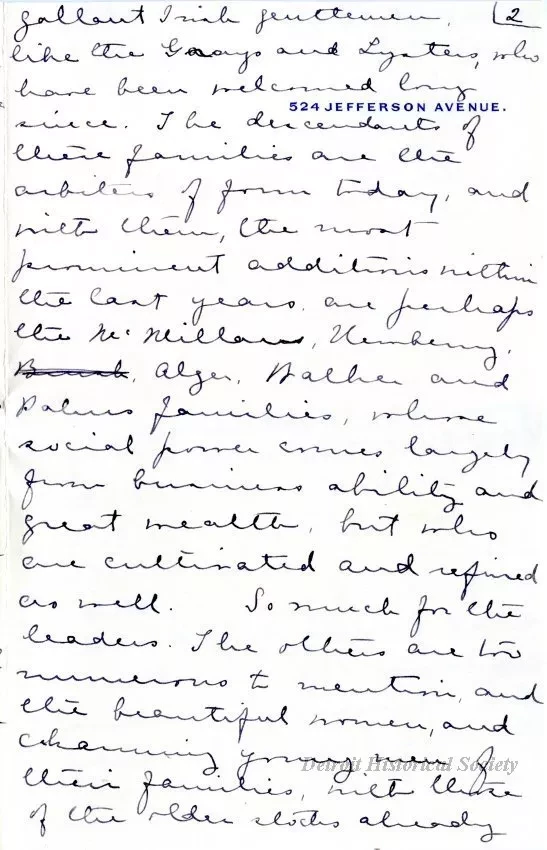 gallant Irish gentlemen, 2
like the Grays and Lysters, who
have been welcomed long
524 JEFFERSON AVENUE.
since. The descendants of
these families are the
arbiters of form today, and
with them, the most
prominent additions within
the last years, are perhaps
the McMillans, Newberry,
Alger, Walker and
Palms families, whose
social power comes largely
from business ability and
great wealth, but who
are cultivated and refined
as well. So much for the
leaders. The others are too
numerous to mention, and
the beautiful women, and
charming young men of
Detroit Historical Society
their families, with those
of the older stocks already